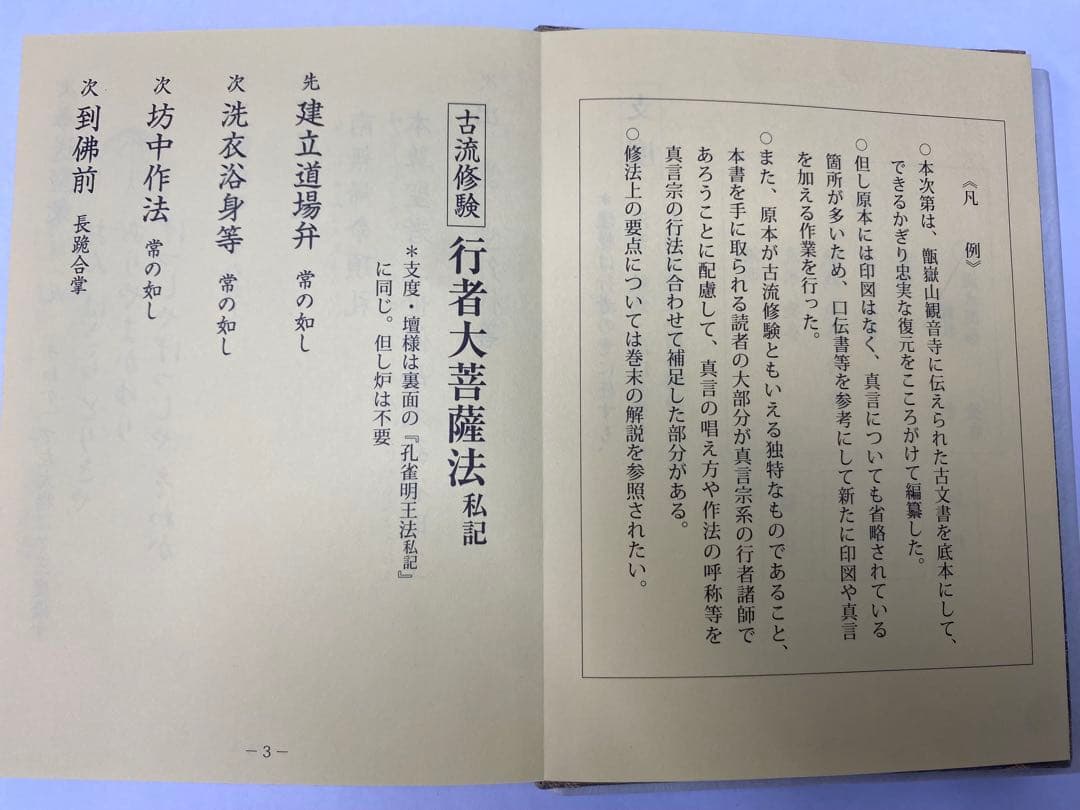 《凡　例》
○本次第は、甑嶽山観音寺に伝えられた古文書を底本にして、
できるかぎり忠実な復元をこころがけて編纂した。
○但し原本には印図はなく、真言についても省略されている
箇所が多いため、口伝書等を参考にして新たに印図や真言
を加える作業を行った。
○また、原本が古流修験ともいえる独特なものであること、
本書を手に取られる読者の大部分が真言宗系の行者諸師で
あろうことに配慮して、真言の唱え方や作法の呼称等を
真言宗の行法に合わせて補足した部分がある。
○修法上の要点については巻末の解説を参照されたい。
古流修験 行者大菩薩法 私記
＊支度・壇様は裏面の『孔雀明王法私記』
に同じ。但し炉は不要
先 建立道場弁 常の如し
次 洗衣浴身等 常の如し
次 坊中作法 常の如し
次 到佛前 長跪合掌
－3－